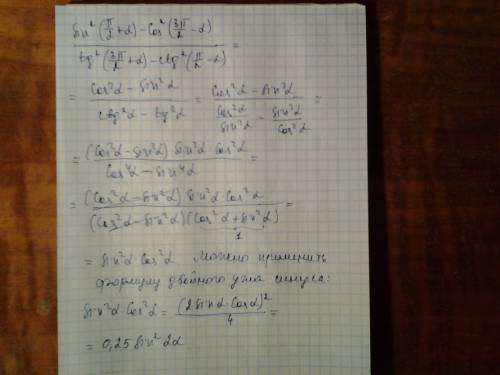 (sin²(π/2+α) - cos²(3π/2-α)) / (tg²(3π/2+α) - ctg²(π/2-α)) =
= (cos²α - sin²α) / (ctg²α - tg²α) = (cos²α - sin²α) / (cos²α/sin²α - sin²α/cos²α) =
= ((cos²α - sin²α) sin²α cos²α) / (cos⁴α - sin⁴α) =
= ((cos²α - sin²α) sin²α · cos²α) / ((cos²α - sin²α)(cos²α + sin²α)) =
1
= sin²α · cos²α Можно применить
формулу двойного угла синуса:
sin²α · cos²α = (2 sinα · cosα)² / 4 =
= 0,25 sin² 2α